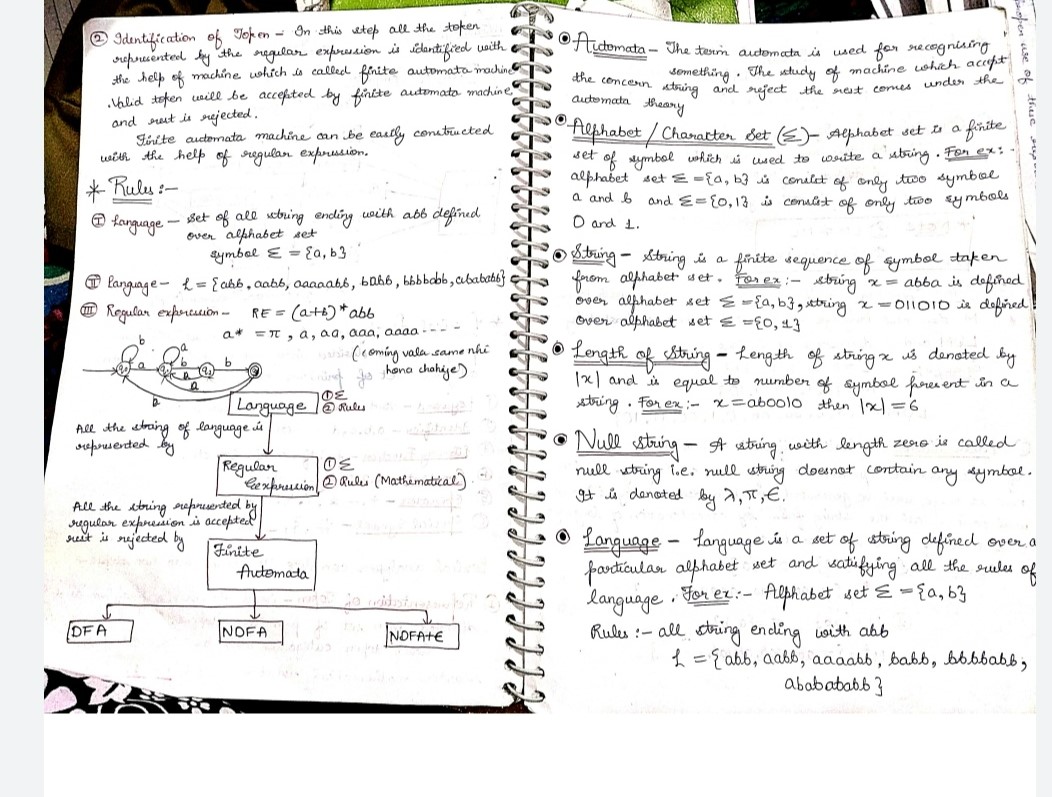 ② Identification of Token – In this step all the token
represented by the regular expression is identified with
the help of machine which is called finite automata machine
. Valid token will be accepted by finite automata machine
and rest is rejected.
Finite automata machine can be easily constructed
with the help of regular expression.
* Rules :–
Ⓘ Language – Set of all string ending with abb defined
over alphabet set
symbol Σ = {a, b}
Ⓘ Language – L = {abb, aabb, aaaaabb, babb, bbbbabb, abababb}
Ⓘ Regular expression – RE = (a+b)*abb
a* = π, a, aa, aaa, aaaa - - - -
(coming vala same nhi
hona chahiye)
b a
a b b
a
Language ① Σ
② Rules
All the string of language is
represented by
Regular
Expression ① Σ
② Rules (Mathematical)
All the string represented by
regular expression is accepted
rest is rejected by
Finite
Automata
DFA NDFA NDFA+ε
⦿ Automata – The term automata is used for recognising
something. The study of machine which accept
the concern string and reject the rest comes under the
automata theory
⦿ Alphabet / Character Set (Σ) – Alphabet set is a finite
set of symbol which is used to write a string. For ex: -
alphabet set Σ = {a, b} is consist of only two symbol
a and b and Σ = {0, 1} is consist of only two symbols
0 and 1.
⦿ String – String is a finite sequence of symbol taken
from alphabet set. For ex :– string x = abba is defined
over alphabet set Σ = {a, b}, string x = 011010 is defined
over alphabet set Σ = {0, 1}
⦿ Length of String – Length of string x is denoted by
|x| and is equal to number of symbol present in a
string. For ex :– x = ab0010 then |x| = 6
⦿ Null string – A string with length zero is called
null string i.e. null string doesnot contain any symbol.
It is denoted by λ, π, ε.
⦿ Language – Language is a set of string defined over a
particular alphabet set and satisfying all the rules of
language. For ex :– Alphabet set Σ = {a, b}
Rules :– all string ending with abb
L = {abb, aabb, aaaabb, babb, bbbbabb,
abababb}